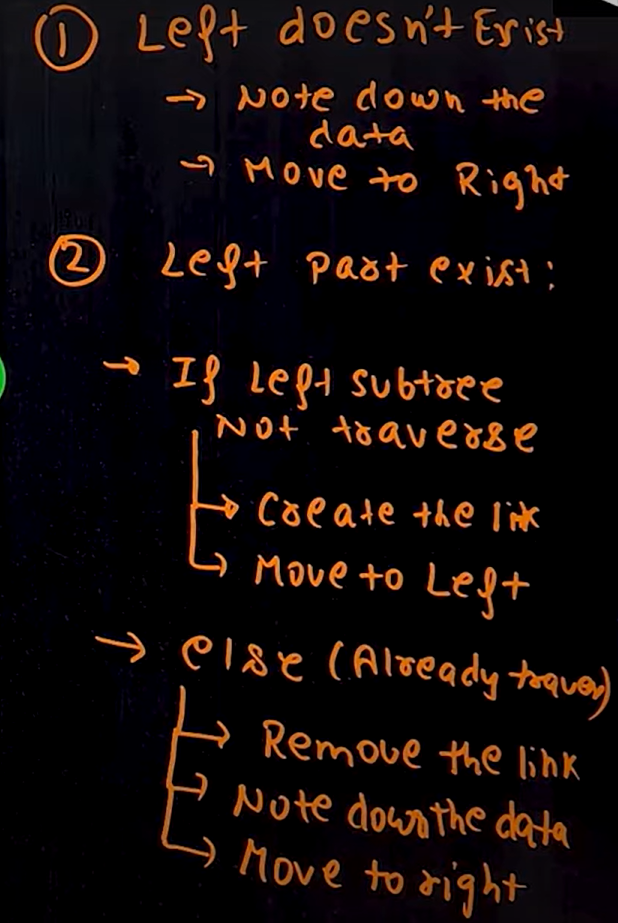 ① Left doesn't Exist
→ Note down the
data
→ Move to Right
② Left part exist:
→ If Left subtree
Not traverse
→ Create the link
→ Move to Left
→ else (Already traver)
→ Remove the link
→ Note down the data
→ Move to right